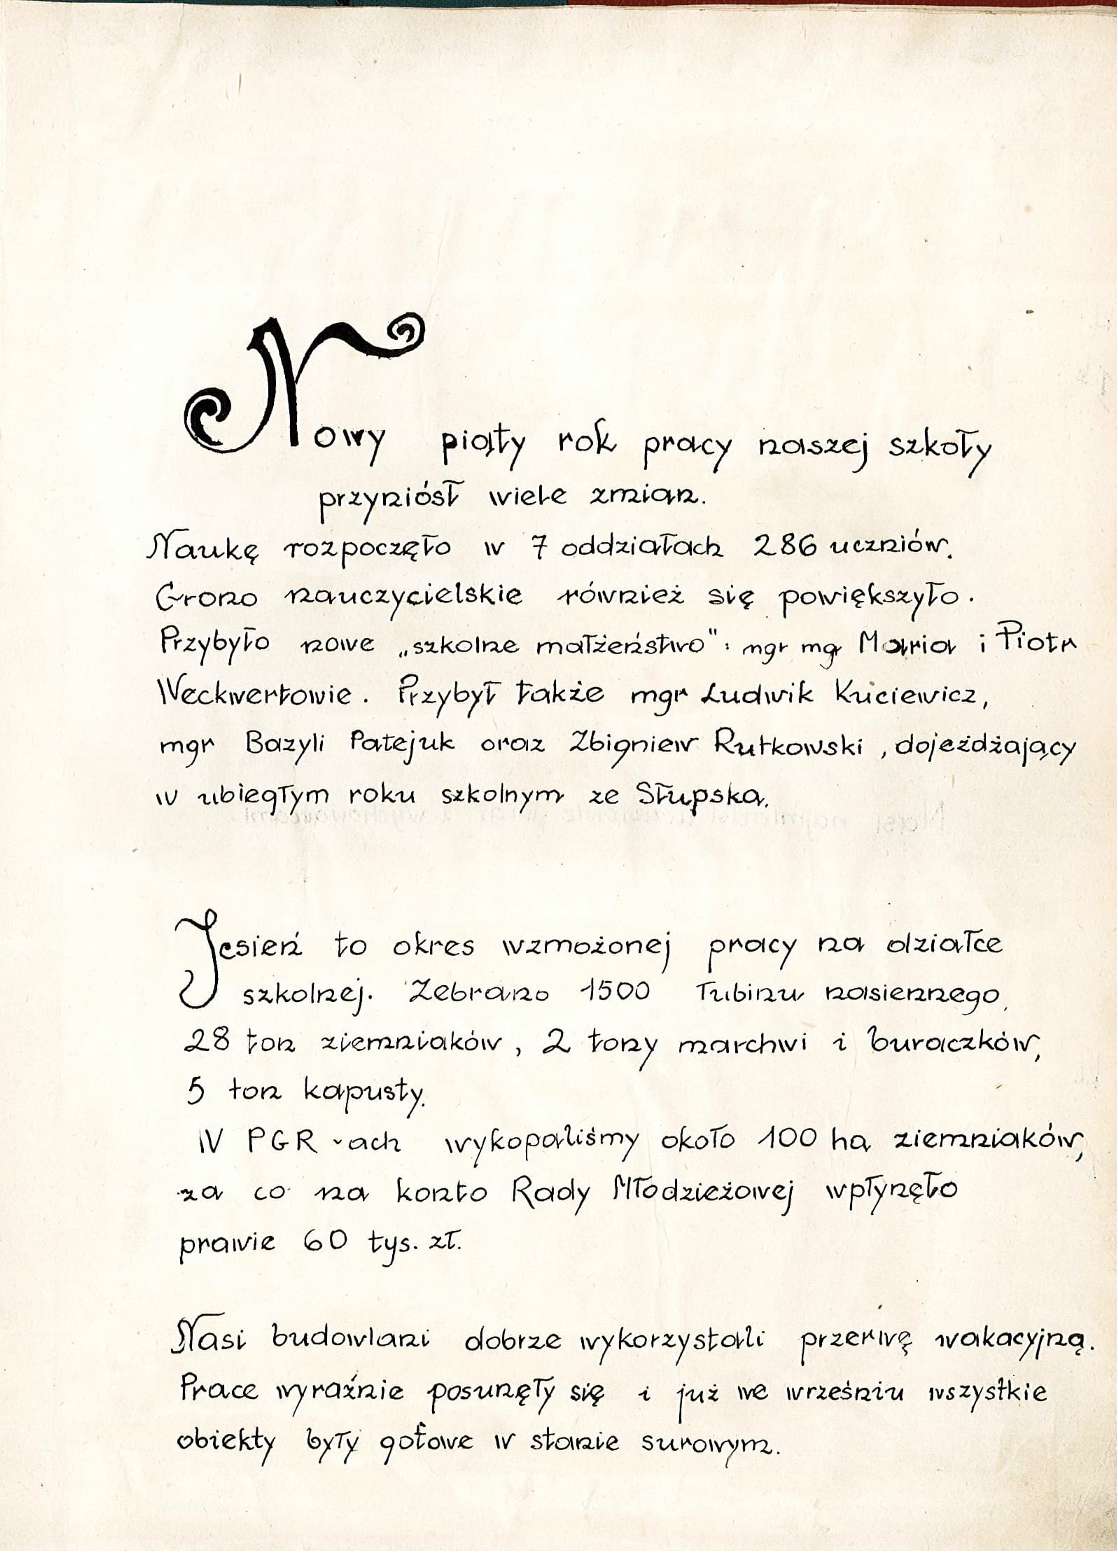 Nowy piąty rok pracy naszej szkoły
przyniósł wiele zmian.
Naukę rozpoczęło w 7 oddziałach 286 uczniów.
Grono nauczycielskie również się powiększyło.
Przybyło nowe „szkolne małżeństwo": mgr mgr Maria i Piotr
Weckwertowie. Przybył także mgr Ludwik Kuciewicz,
mgr Bazyli Patejuk oraz Zbigniew Rutkowski, dojeżdżający
w ubiegłym roku szkolnym ze Słupska.
Jesień to okres wzmożonej pracy na działce
szkolnej. Zebrano 1500 łubinu nasiennego,
28 ton ziemniaków, 2 tony marchwi i buraczków,
5 ton kapusty.
W PGR-ach wykopaliśmy około 100 ha ziemniaków,
za co na konto Rady Młodzieżowej wpłynęło
prawie 60 tys. zł.
Nasi budowlani dobrze wykorzystali przerwę wakacyjną.
Prace wyraźnie posunęły się i już we wrześniu wszystkie
obiekty były gotowe w stanie surowym.